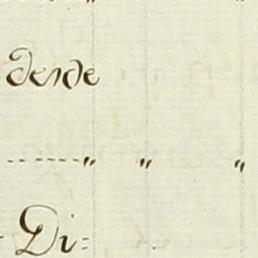 dende
" " "
Di=